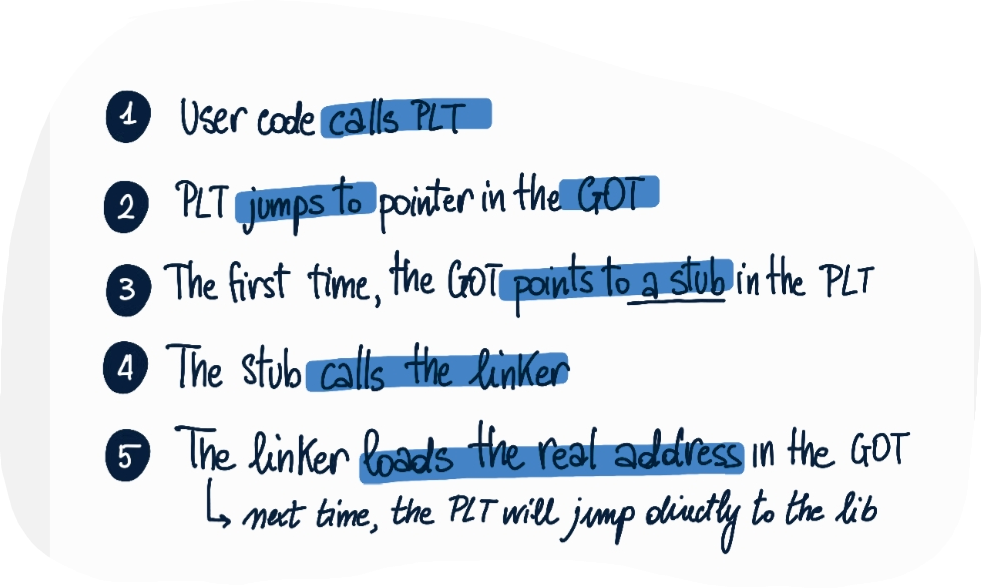 1 User code calls PLT
2 PLT jumps to pointer in the GOT
3 The first time, the GOT points to a stub in the PLT
4 The stub calls the linker
5 The linker loads the real address in the GOT
↳ next time, the PLT will jump directly to the lib